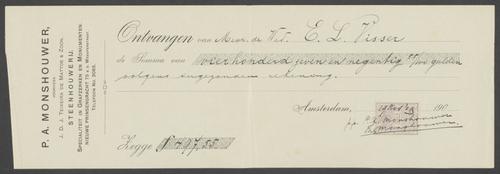 P. A. MONSHOUWER,
J. D. J. TEIXEIRA DE MATTOS & ZOON.
STEENHOUWERIJ.
SPECIALITEIT IN GRAFZERKEN EN MONUMENTEN
NIEUWE PRINSENGRACHT 75 A.D. WEESPERSTRAAT.
TELEFOON No. 3085.
Ontvangen van Mevr. de Wed. E. L. Visser
de Somma van vierhonderd zeven en negentig 55/100 gulden
volgens ingezonden rekening.
Amsterdam, 190
pp. P. A. Monshouwer
Monshouwer
Zegge f 497,55